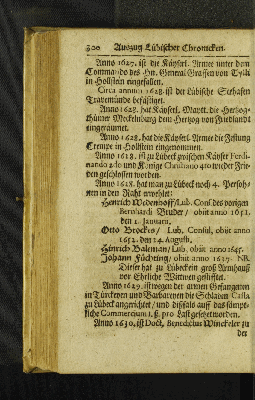 300 Auszug Lübischer Chronicken.
Anno 1627. ist die Käyserl. Armee unter dem
Commando des Hn. General Graffen von Tylli
in Hollstein eingefallen.
Circa annum 1628. ist der Lübische Seehafen
Travemünde befästiget.
Anno 1628. hat Käyserl. Maytt. die Hertzog-
thümer Mecklenburg dem Hertzog von Friedlandt
eingeraumet.
Anno 1628. hat die Käyserl. Armee die Festung
Crempe in Hollstein eingenommen.
Anno 1629. ist zu Lübeck zwischen Käyser Ferdi-
nando 2do und König Christiano 4to wieder Frie-
den geschlossen worden.
Anno 1628. hat man zu Lübeck noch 4. Persoh-
nen in den Raht erwehlet:
Henrich Wedenhoff / Lub. Cons. des vorigen
Bernhardi Bruder / obiit anno 1651.
den 1. Januarii.
Otto Brockes / Lub. Consul, obiit anno
1652. den 24. Augusti.
Hinrich Baleman / Lub. obiit anno 1645.
Johann Füchting / obiit anno 1637. NB.
Dieser hat zu Lübeck ein groß Armhauß
vor Ehrliche Wittwen gestifftet.
Anno 1629. ist wegen der armen Gefangenen
in Türckeyen und Barbareyen die Sclaven Cassa
zu Lübeck angerichtet / und dißfals auff das sämpt-
liche Commercium 1. ß. pro Last gesetzet worden.
Anno 1630. ist Doct. Benedictus Winckeler zu
der